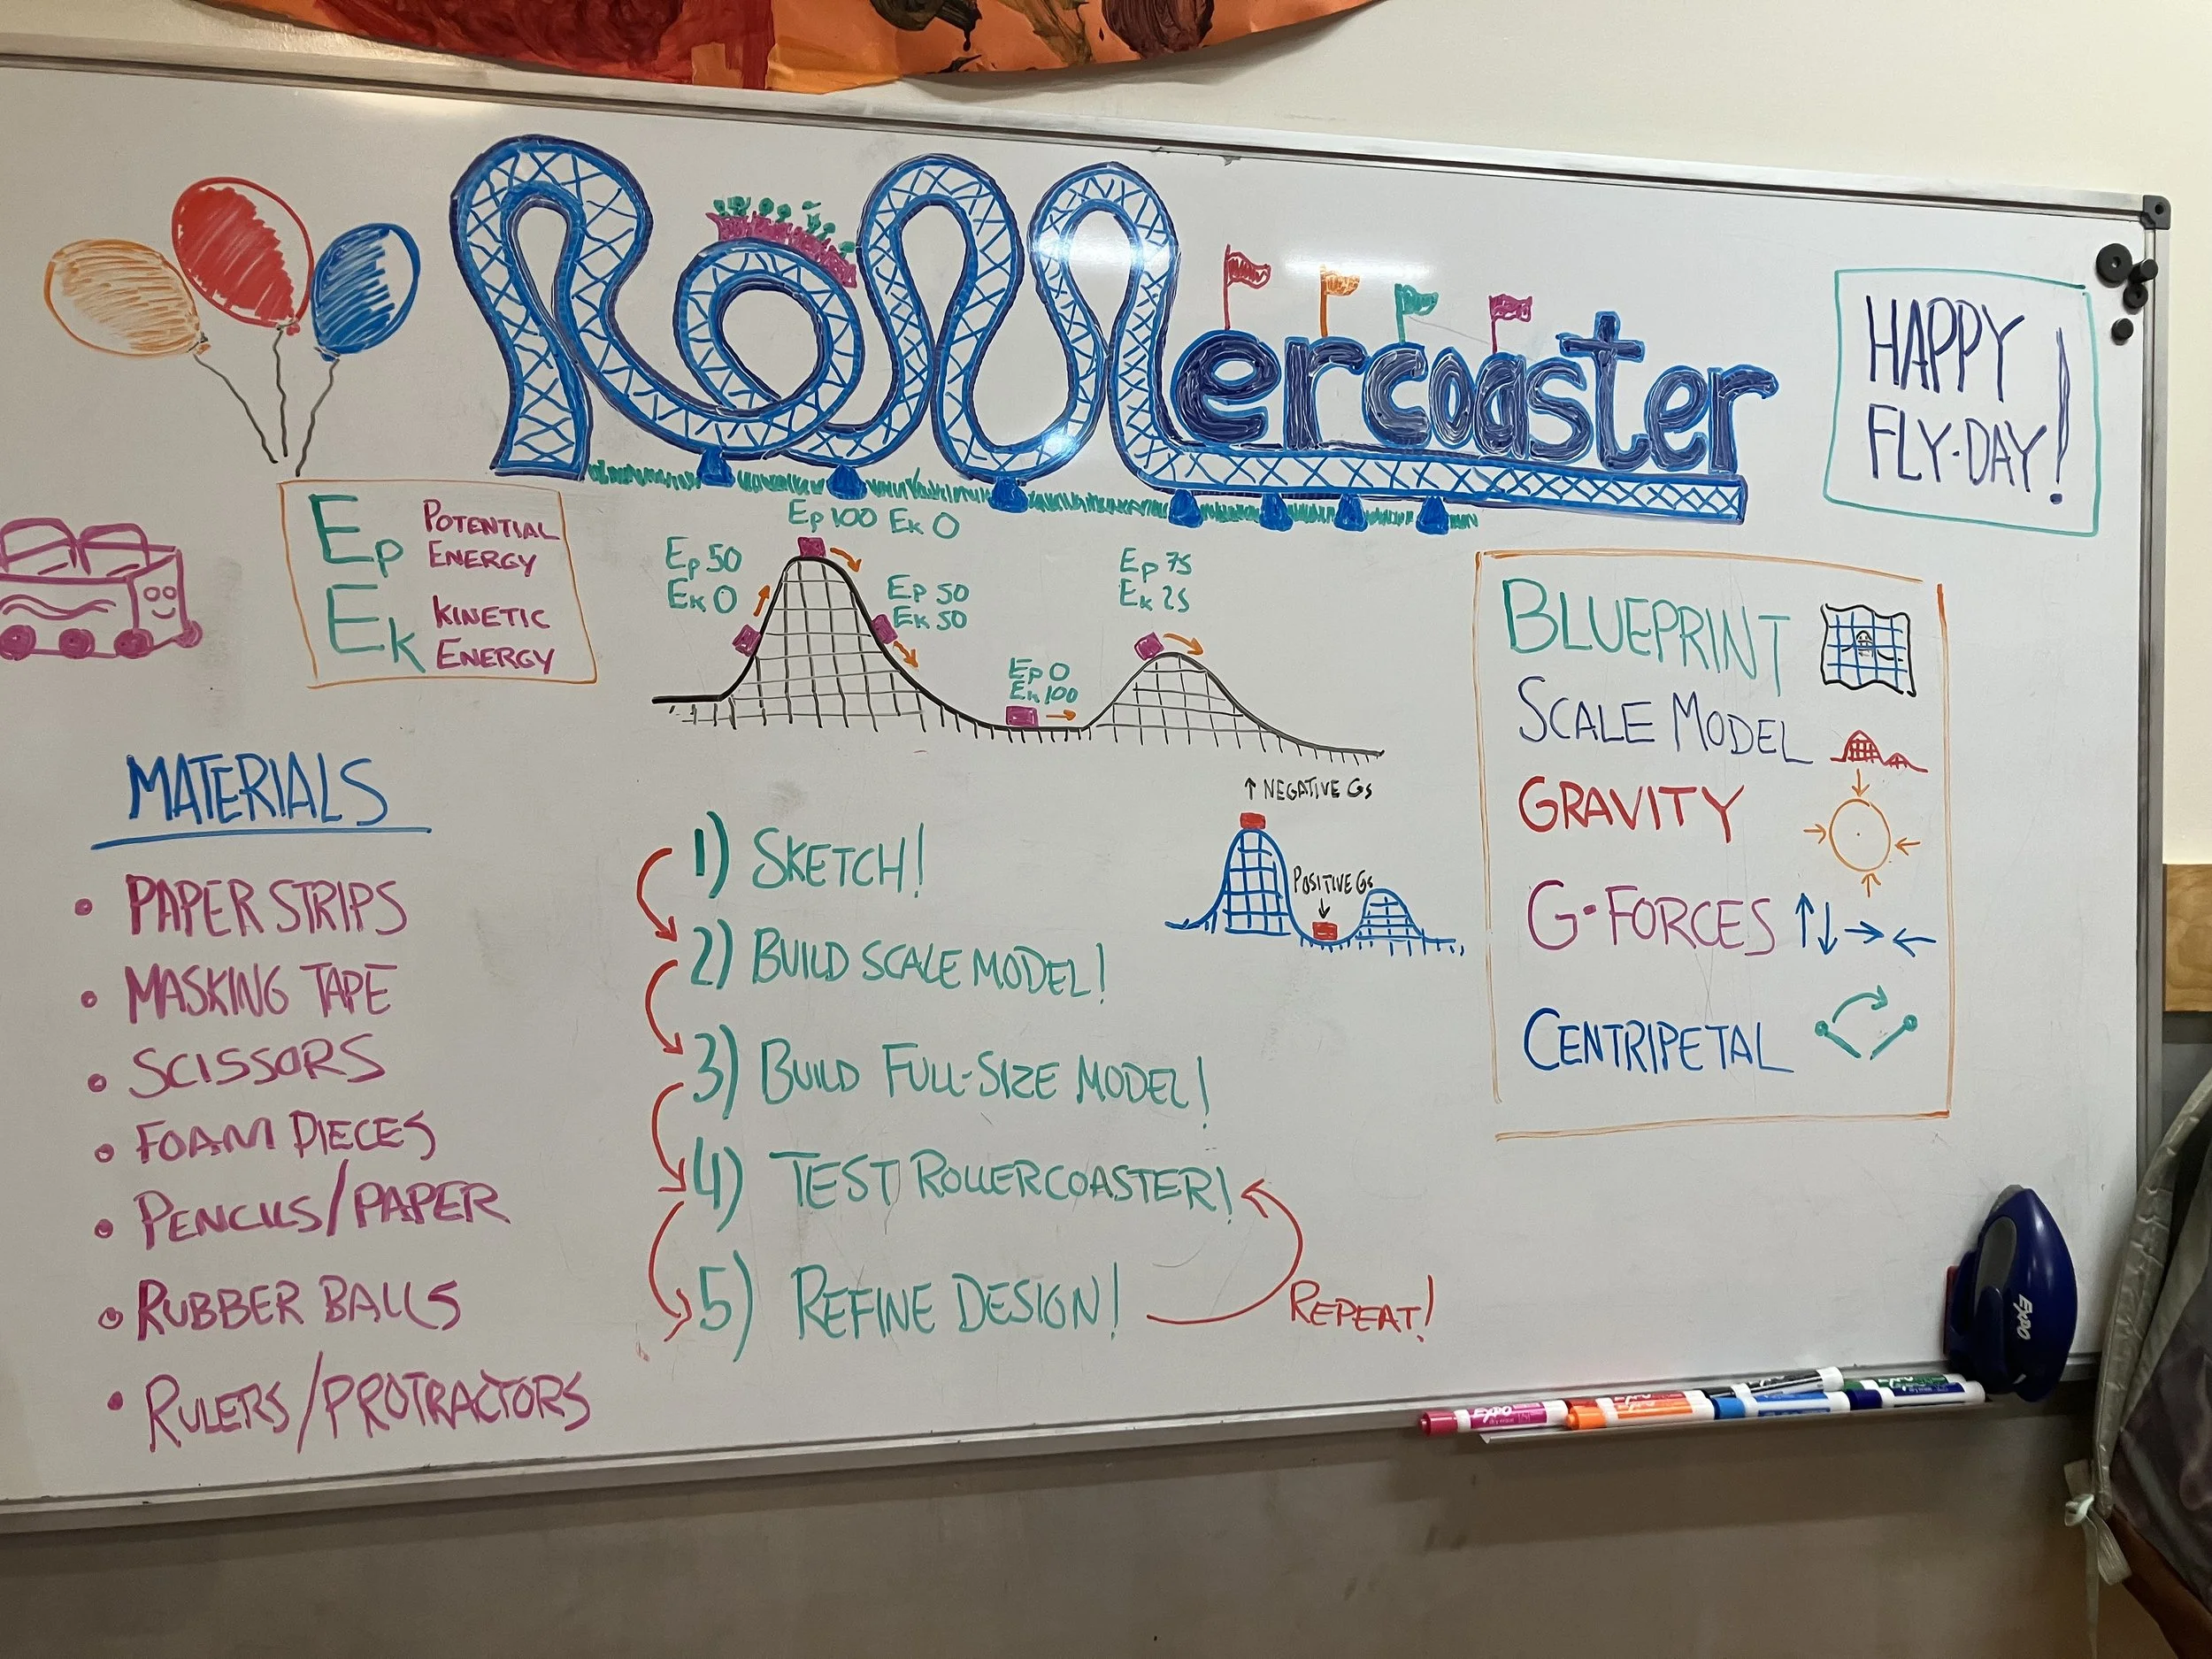 Rollercoaster
HAPPY
FLY-DAY!
Ep POTENTIAL
ENERGY
Ek KINETIC
ENERGY
Ep 50
Ek 0
Ep 100 Ek 0
Ep 50
Ek 50
Ep 0
Ek 100
Ep 75
Ek 25
MATERIALS
• PAPER STRIPS
• MASKING TAPE
• SCISSORS
• FOAM PIECES
• PENCILS/PAPER
• RUBBER BALLS
• RULERS/PROTRACTORS
1) SKETCH!
2) BUILD SCALE MODEL!
3) BUILD FULL-SIZE MODEL!
4) TEST ROLLERCOASTER!
5) REFINE DESIGN!
REPEAT!
↑ NEGATIVE Gs
POSITIVE Gs
↓
BLUEPRINT
SCALE MODEL
GRAVITY
G-FORCES ↑↓→←
CENTRIPETAL
EXPO
EXPO